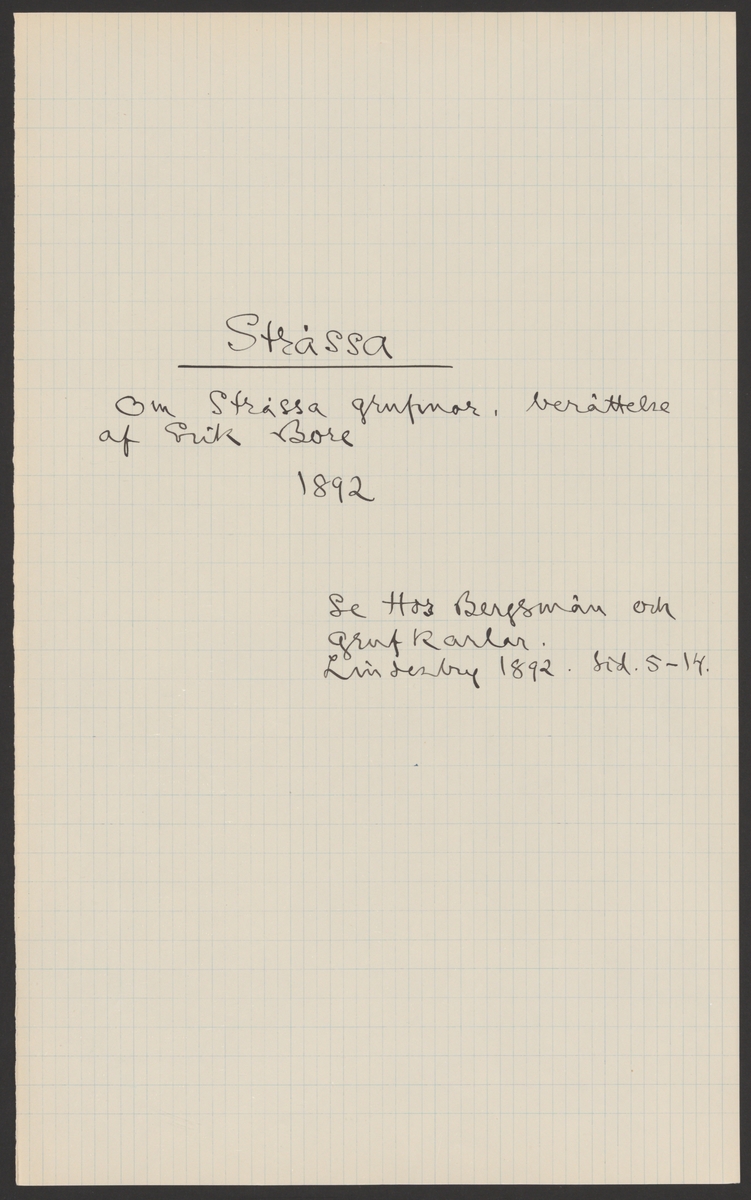 Stråssa
Om Stråssa grufvor, berättelse
af Erik Bore
1892
Se Hos Bergsmän och
grufkarlar.
Lindesberg 1892. Sid. 5-14.